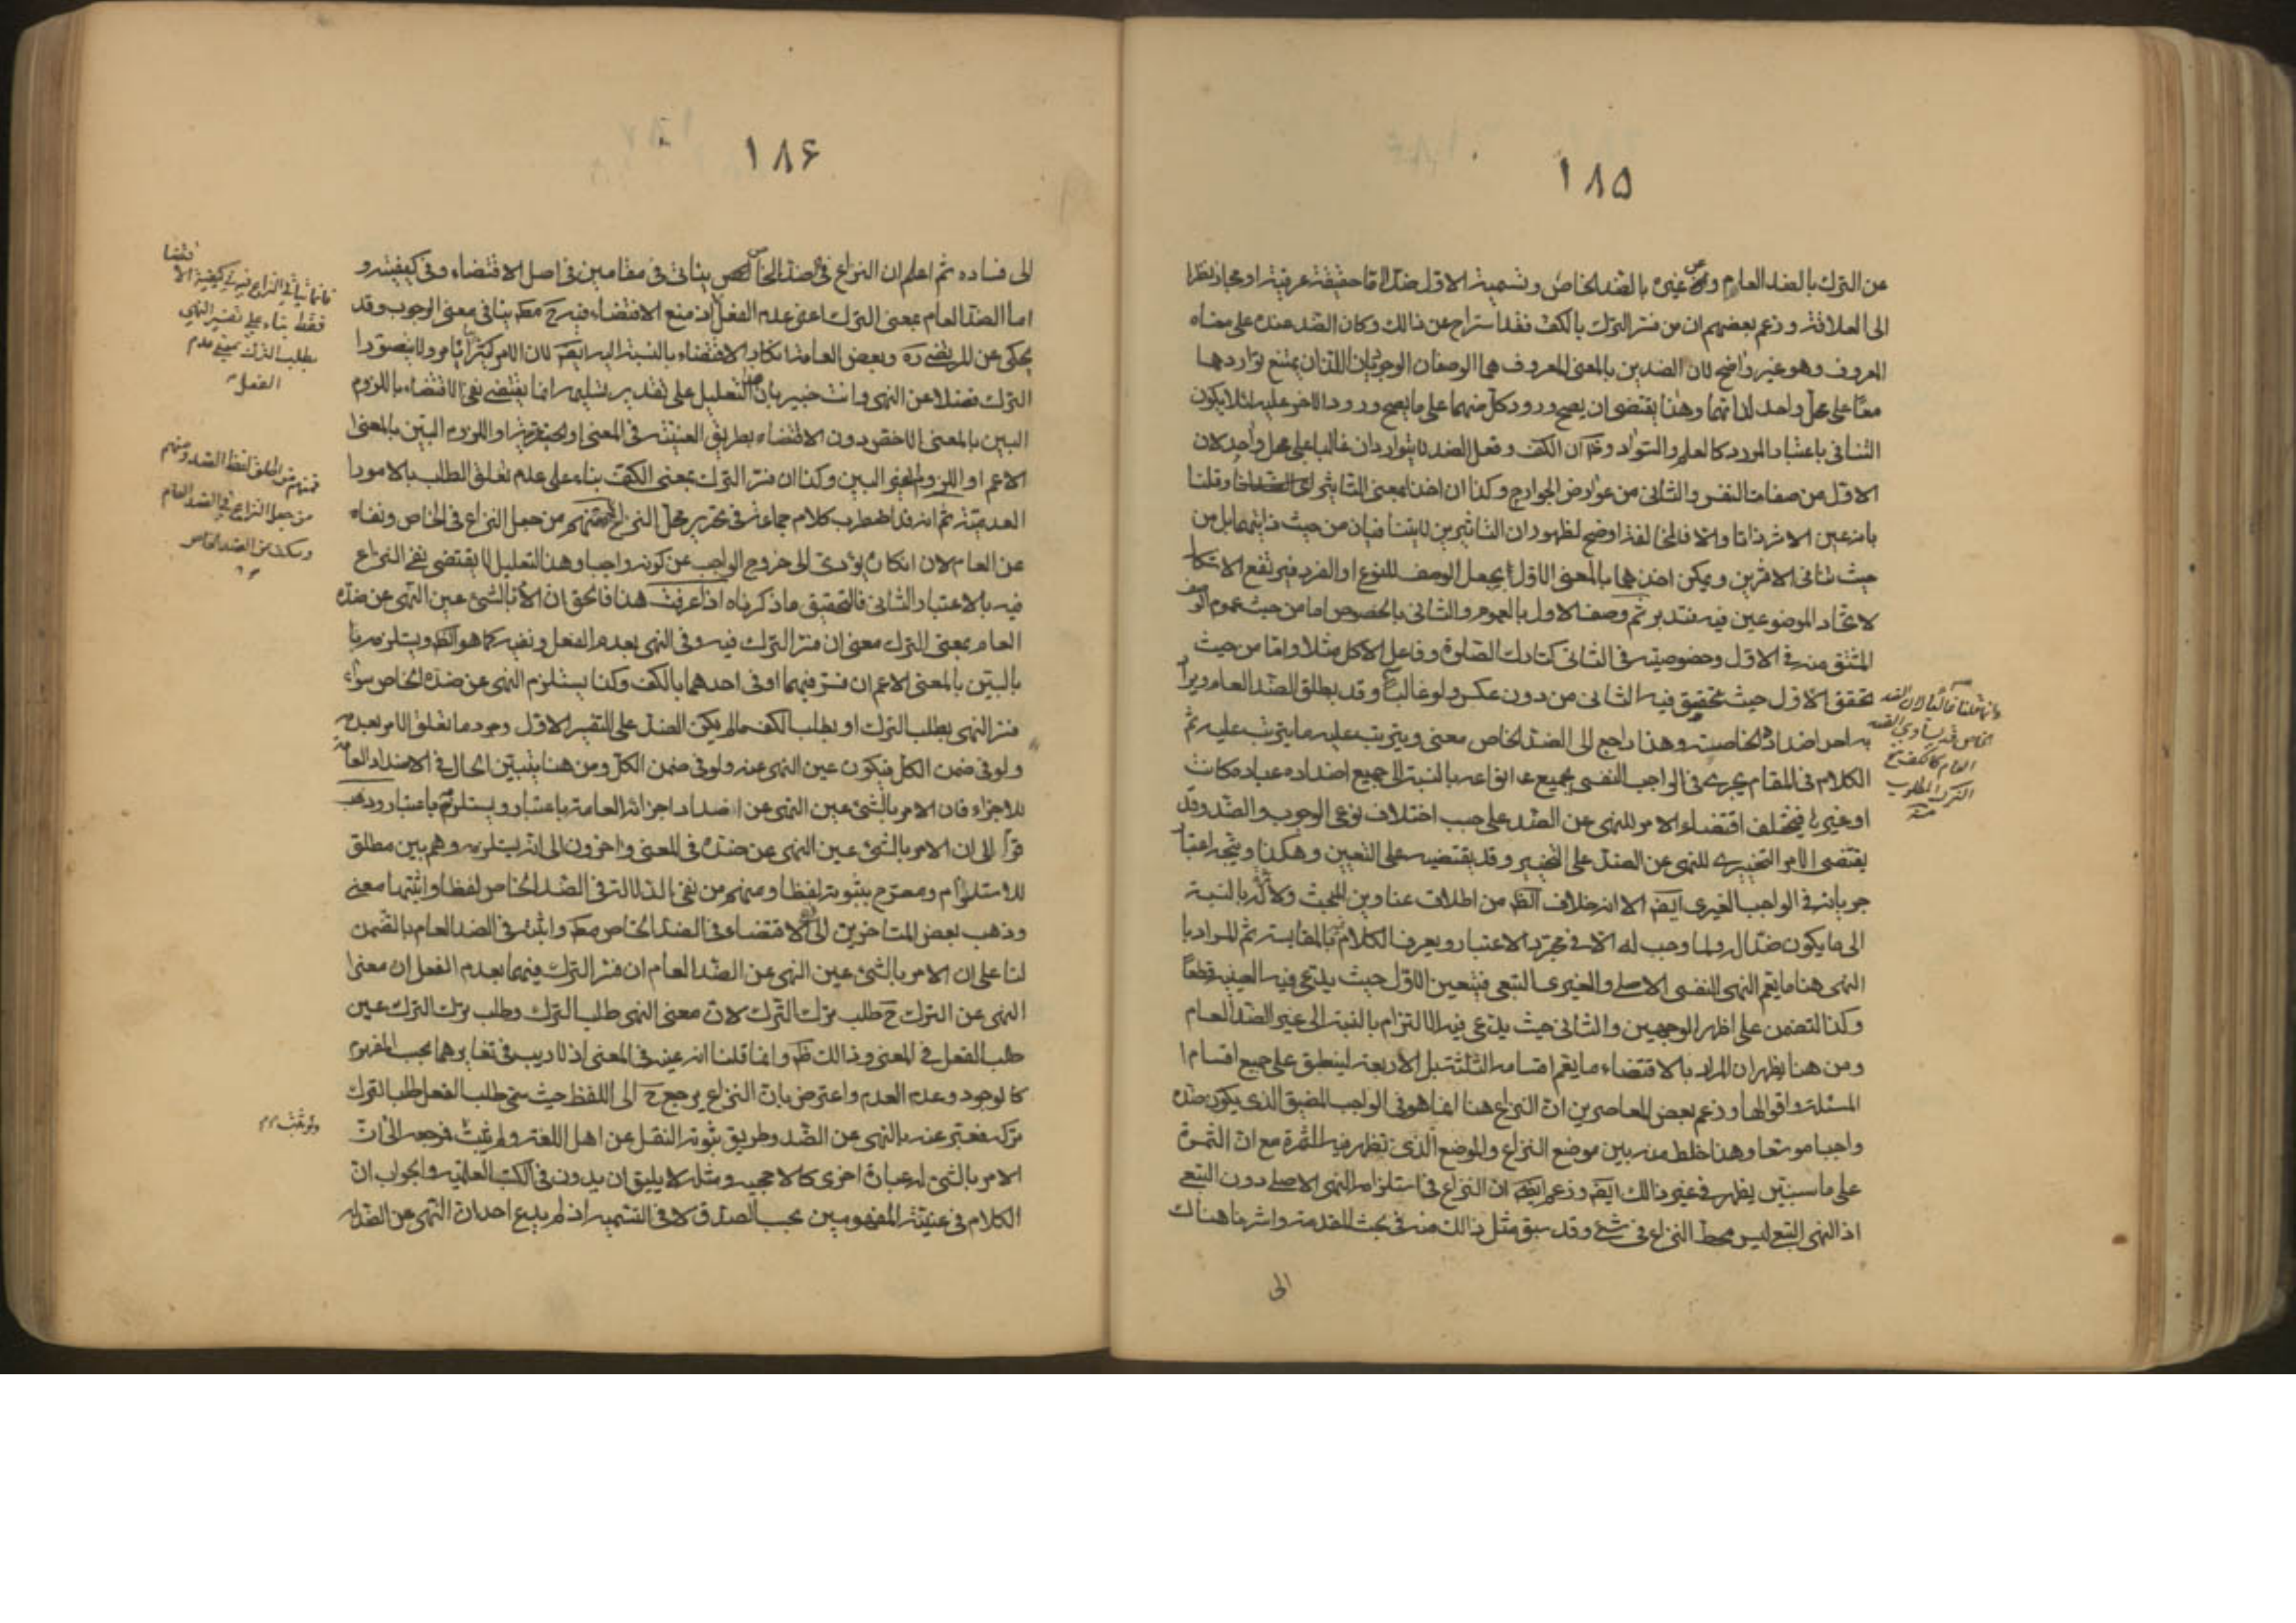 ١٨۵
عن الترك بالضد العام وعن غيره بالضد الخاص وتسمية الاول ضدا اما حقيقة عرفية او مجاز نظرا
الى العلاقة وزعم بعضهم ان من فسر الترك بالكف فقد استراح عن ذالك وكان الضد عنده على معناه
المعروف وهو غير واضح لان الضدين بالمعنى المعروف هما الوصفان الوجوديان اللذان يمتنع تواردهما
معا على محل واحد لذاتهما وهذا يقتضى ان يصح ورود كل منهما على ما يصح ورود الاخر عليه لئلا يكون
التنافى باعتبار المورد كالعلم والسواد و ان الكف وفعل الضد لا يتواردان غالبا على محل واحد لان
الاول من صفات النفس والثانى من عوارض الجوارح وكذا ان اخذا بمعنى التاثير وقلنا
بانه عين الاثر ذاتا والا فالمخالفة اوضح لظهور ان التاثيرين لا يتنافيان من حيث ذاتيهما بل من
حيث تنافى الاثرين ويمكن اخذهما بالمعنى الاول بجعل الوصف للنوع او الفرد فيرتفع الاشكال
لاتحاد الموضوعين فيه فتدبر ثم وصف الاول بالعموم والثانى بالخصوص اما من حيث عموم الوصف
المشتق منه فى الاول وخصوصيته فى الثانى كتارك الصلوة وفاعل الاكل مثلا واما من حيث
تحقق الاول حيث تحقق فيه الثانى من دون عكس ولو غالبا وقد يطلق الضد العام ويراد
به احد اضداده الخاصة وهذا راجع الى الضد الخاص معنى ويترتب عليه ما يترتب عليه ثم
الكلام فى المقام يجرى فى الواجب النفسى بجميع انواعه بالنسبة الى جميع اضداده عبادة كانت
او غيرها فيختلف اقتضاء الامر للنهى عن الضد على حسب اختلاف نوعى الوجوب والضد وقد
يقتضى الامر التخييرى للنهى عن الضد على التخيير وقد يقتضيه على التعيين وهكذا ويتجه اعتبار
جريانه فى الواجب الغيرى ايضا الا انه خلاف الظ من اطلاق عناوين المبحث ولا بالنسبة
الى ما يكون ضدا له ولما وجب له الا فى مجرد الاعتبار ويعرف الكلام فيه بالمقايسة ثم المراد با
النهى هنا ما يعم النهى النفسى الاصلى والغيرى التبعى فيتعين الاول حيث يدعى فيه العينية قطعا
وكذا التضمن على اظهر الوجهين والثانى حيث يدعى فيه الالتزام بالنسبة الى غير الضد العام
ومن هنا يظهر ان المراد بالاقتضاء ما يعم اقسامه الثلثة بل الاربعة لينطبق على جميع اقسام
المسئلة واقوالها وزعم بعض المعاصرين ان النزاع هنا انما هو فى الواجب المضيق الذى يكون ضده
واجبا موسعا وهذا خلط منه بين موضع النزاع والموضع الذى تظهر فيه الثمرة مع ان الثمرة
على ما سنبين يظهر فى غير ذالك ايضا وزعم ايضا ان النزاع فى استلزامه النهى الاصلى دون التبعى
اذ النهى التبعى ليس محط النزاع فى شئ وقد سبق مثل ذالك منه فى بحث المقدمة واشرنا هناك
الى
وانما قلنا غالبا لان الضد
الخاص قد يساوى الضد
العام كالكف مع
الترك المطلوب
منه
١٨۶
الى فساده ثم اعلم ان النزاع فى الضد الخاص يتاتى فى مقامين فى اصل الاقتضاء وفى كيفيته و
اما الضد العام بمعنى الترك اعنى عدم الفعل اذ منع الاقتضاء فيه ح مط ينافى معنى الوجوب وقد
يحكى عن المرتضى ره وبعض العامة انكار الاقتضاء بالنسبة اليه ايضا لان الامر كثيرا ما لا يتصور
الترك فضلا عن النهى وانت خبير بان هذا التعليل على تقدير تسليمه انما يقتضى نفى الاقتضاء باللزوم
البين بالمعنى الاخص دون الاقتضاء بطريق العينية فى المعنى او الجزئية او اللزوم البين بالمعنى
الاعم او اللزوم الغير البين وكذا ان فسر الترك بمعنى الكف بناء على عدم تعلق الطلب بالامور
العدمية ثم انه قد اضطرب كلام جماعة فى تحرير محل النزاع فمنهم من جعل النزاع فى الخاص ونفاه
عن العام لان انكاره يؤدى الى خروج الواجب عن كونه واجبا وهذا التعليل لا يقتضى نفى النزاع
فيه بالاعتبار الثانى فالتحقيق ما ذكرناه اذا عرفت هذا فالحق ان الامر بالشئ عين النهى عن ضده
العام بمعنى الترك معنى ان فسر الترك فيه وفى النهى بعدم الفعل ونفيه كما هو الظ ويستلزمه
بالبين بالمعنى الاعم ان فسر فيهما او فى احدهما بالكف وكذا يستلزم النهى عن ضده الخاص سواء
فسر النهى بطلب الترك او بطلب الكف مالم يكن الضد على التفسير الاول وجود ما تعلق الامر بعدمه
ولو فى ضمن الكل فيكون عين النهى عنه ولو فى ضمن الكل ومن هنا يتبين الحال فى الاضداد العامة
للاجزاء فان الامر بالشئ عين النهى عن اضداد اجزائه العامة باعتبار ويستلزمه باعتبار وذهب
قوم الى ان الامر بالشئ عين النهى عن ضده فى المعنى واخرون الى انه يستلزمه وهم بين مطلق
للاستلزام ومصرح بثبوته لفظا ومنهم من نفى الدلالة فى الضد الخاص لفظا واثبتها معنى
وذهب بعض المتاخرين الى نفى الاقتضاء فى الضد الخاص مط واثبته فى الضد العام بالتضمن
لنا على ان الامر بالشئ عين النهى عن الضد العام ان فسر الترك فيهما بعدم الفعل ان معنى
النهى عن الترك ح طلب ترك الترك لان معنى النهى طلب الترك وطلب ترك الترك عين
طلب الفعل فى المعنى وذالك ظ وانما قلنا انه عينه فى المعنى اذ لا ريب فى تغايرهما بحسب المفهوم
كالوجود وعدم العدم واعترض بان النزاع يرجع ح الى اللفظ حيث سمى طلب الفعل طلب الترك
تركه فعبر عنه بالنهى عن الضد وطريق ثبوته النقل عن اهل اللغة ولم يثبت فرجعه الى ان
الامر بالشئ له عبارة اخرى كالاحجية ومثله لا يليق ان يدون فى الكتب العلمية والجواب ان
الكلام فى عينية المفهومين بحسب الصدق لا فى التسمية اذ لم يدع احد ان النهى عن الضد له
اقتضا
فانما ياتى النزاع فيه فى كيفية الا
فقط بناء على تفسير النهى
بطلب الترك بمعنى عدم
الفعل
فمنهم من اطلق لفظ الضد ومنهم
من جعل النزاع فى الضد العام
وسكت عن الضد الخاص